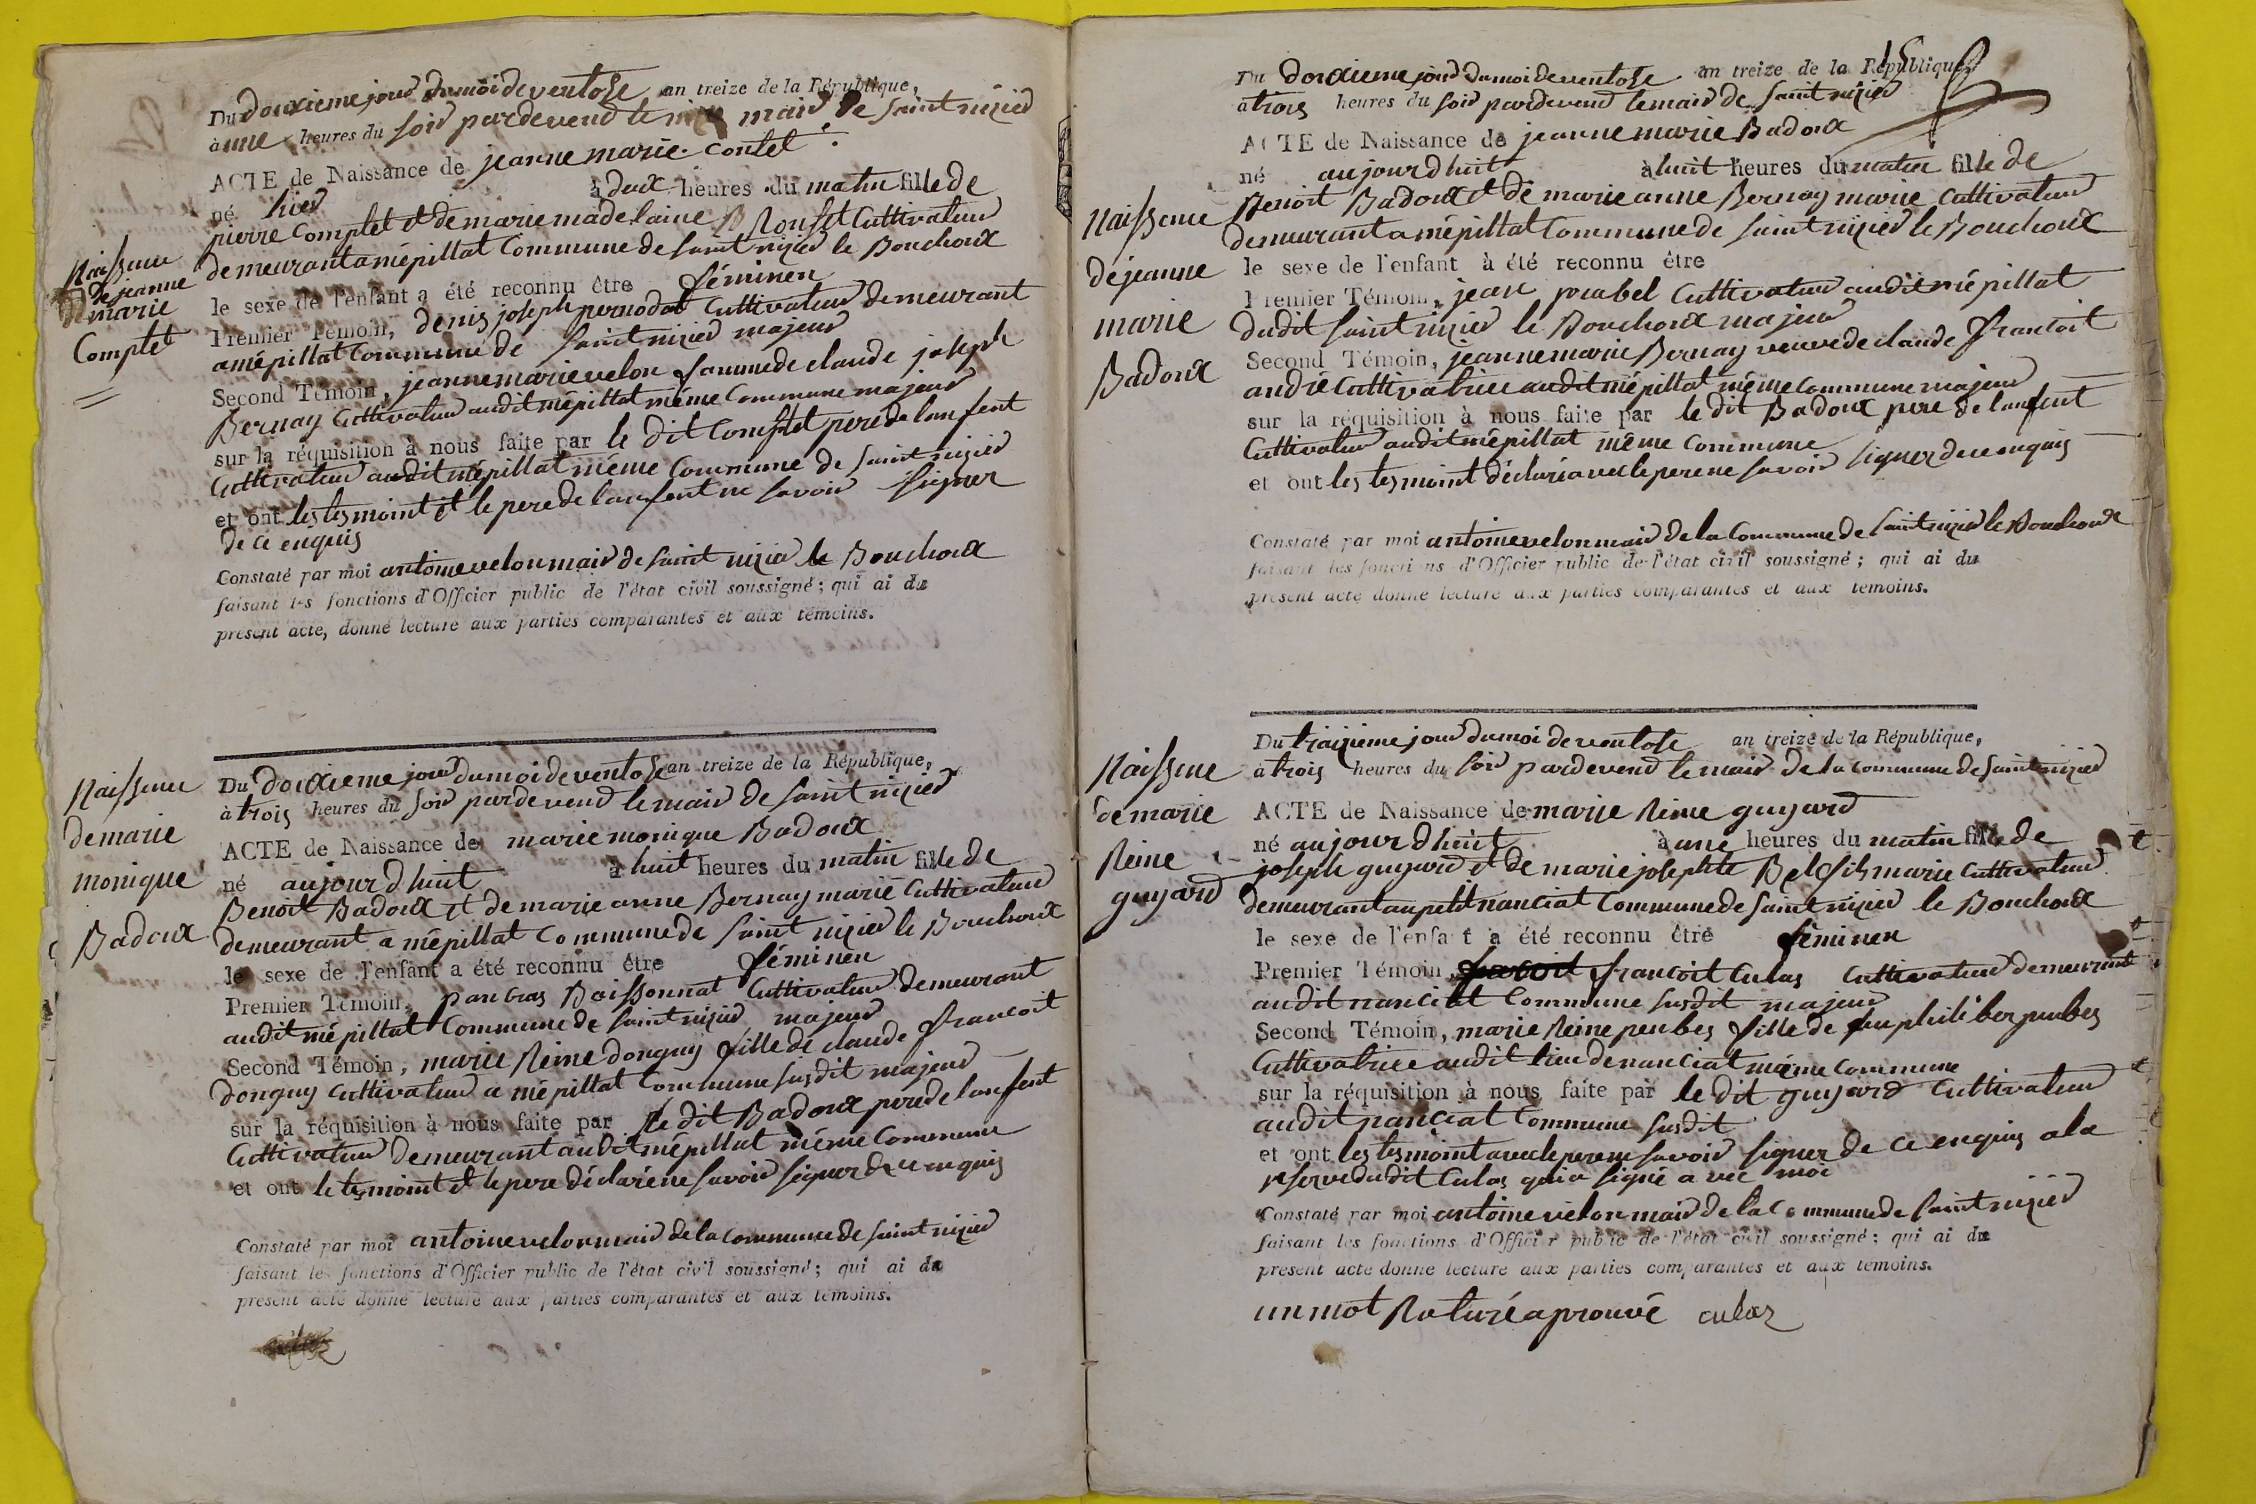 Du douxieme jour du moi de ventose an treize de la République,
à une heures du soir pardevend le maire de saint nizier
ACTE de Naissance de jeanne marie contet
né hier à deux heures du matin fille de
pierre Complet et de marie madelaine Cultivateur
demeurant a mépillat Commune de saint nizier le Bouchoux
le sexe de l'enfant a été reconnu être féminen
Premier Témoin, denis joseph pernodat Cultivateur demeurant
a mépillat Commune de saint nizier majeur
Second Témoin, jeanne marie velon famme de claude joseph
Bernay Cultivateur audit mépillat même Commune majeur
sur la réquisition à nous faite par le dit Complet pere de lanfent
Cultivateur audit mépillat même Commune de saint nizier
et ont les tesmoint et le pere de lanfent ne savoir signer
de ce enquis
Constaté par moi antoine velon maire de saint nizier le Bouchoux
faisant les fonctions d'Officier public de l'état civil soussigné; qui ai du
présent acte, donné lecture aux parties comparantes et aux témoins.
Naissence
de jeanne
marie
Complet
Du douxieme jour du moi de ventose an treize de la République,
à trois heures du soir pardevend le maire de saint nizier
ACTE de Naissance de marie monique Badoux
né aujourdhuit à huit heures du matin fille de
Benoit Badoux et de marie anne Bernay marié Cultivateur
demeurant a mépillat Commune de saint nizier le Bouchoux
le sexe de l'enfant a été reconnu être féminen
Premier Témoin, pancras Boissonnat Cultivateur demeurant
audit mépillat Commune de saint nizier majeur
Second Témoin, marie Reine donguy fille de claude francoit
donguy Cultivateur a mépillat Commune susdit majeur
sur la réquisition à nous faite par le dit Badoux pere de lanfent
Cultivateur demeurant audit mépillat même Commune
et ont le tesmoint et le pere déclaré ne savoir signer de ce enquis
Constaté par moi antoine velon maire de la commune de saint nizier
faisant les fonctions d'Officier public de l'état civil soussigné; qui ai du
présent acte donné lecture aux parties comparantes et aux témoins.
Naissence
de marie
monique
Badoux
Du douxieme jour du moi de ventose an treize de la République,
à trois heures du soir pardevend le maire de saint nizier
ACTE de Naissance de jeanne marie Badoux
né aujourdhuit à huit heures du matin fille de
Benoit Badoux et de marie anne Bernay marié Cultivateur
demeurant a mépillat Commune de saint nizier le Bouchoux
le sexe de l'enfant à été reconnu être
Premier Témoin, jean pourabel Cultivateur audit mépillat
dudit saint nizier le Bouchoux majeur
Second Témoin, jeanne marie Bernay veuve de claude francoit
andré Cultivatrice audit mépillat même commune majeur
sur la réquisition à nous faite par le dit Badoux pere de lanfent
Cultivateur audit mépillat même commune
et ont les tesmoint déclaré avec le pere ne savoir signer de ce enquis
Constaté par moi antoine velon maire de la Commune de saint nizier le Bouchoux
faisant les fonctions d'Officier public de l'état civil soussigné; qui ai du
présent acte donné lecture aux parties comparantes et aux témoins.
Naissence
de jeanne
marie
Badoux
Du traizieme jour du moi de ventose an treize de la République,
à trois heures du soir pardevend le maire de la commune de saint nizier
ACTE de Naissance de marie Reine guyard
né aujourdhuit à une heures du matin fille de
joseph guyard et de marie josephte marié Cultivateur
demeurant au petit nanciat Commune de saint nizier le Bouchoux
le sexe de l'enfant a été reconnu être féminen
Premier Témoin, francoit Culas Cultivateur demeurant
audit nanciat Commune susdit majeur
Second Témoin, marie Reine peubes fille de feu philiber peubes
Cultivatrice audit lieu de nanciat même Commune
sur la réquisition à nous faite par le dit guyard Cultivateur
audit nanciat Commune susdit
et ont les tesmoint avec le pere ne savoir signer de ce enquis a la
reserve dudit Culas qui a signé avec moi
Constaté par moi antoine velon maire de la Commune de saint nizier
faisant les fonctions d'Officier public de l'état civil soussigné; qui ai du
présent acte donné lecture aux parties comparantes et aux témoins.
un mot Raturé aprouvé culaz
Naissence
de marie
Reine
guyard